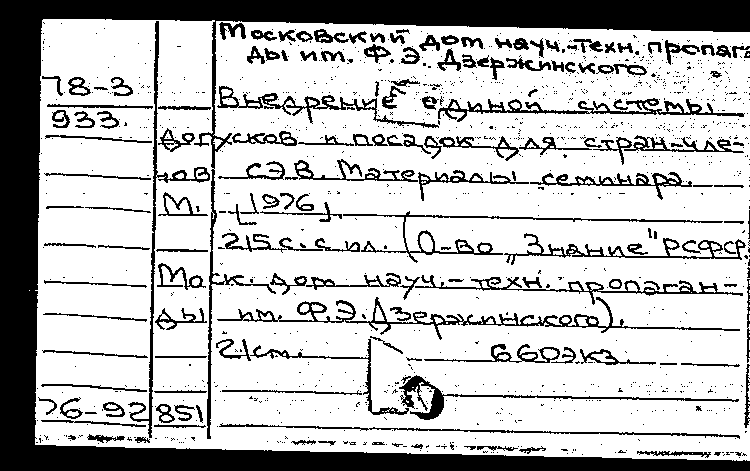 Московский дом науч.-техн. пропаган
ды им. Ф. Э. Дзержинского.
78-3
Внедрение единой системы
933.
допусков и посадок для стран-чле-
нов СЭВ. Материалы семинара.
М., [1976].
215 с. с ил. (О-во „Знание" РСФСР.
Моск. дом науч.-техн. пропаган-
ды им. Ф.Э.Дзержинского).
21см. 660экз.
76-92851